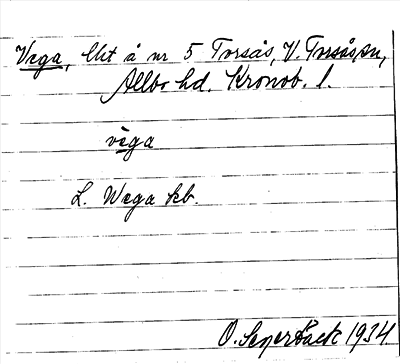 Vega, lht å nr 5 Torsås, V. Torsås sn,
Allbo hd. Kronob. l.
vēga
L. Wega kb.
O. 1934